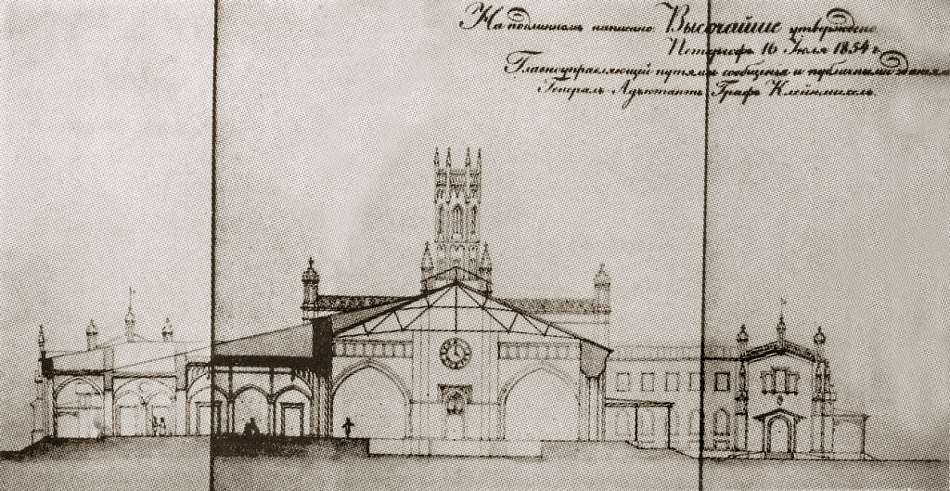 На подлинномъ написано: Высочайше утверждено.
Петергофъ 16 Іюля 1854 г.
Главноуправляющій путями сообщенія и публичными зданіями
Генералъ-Адъютантъ Графъ Клейнмихель.